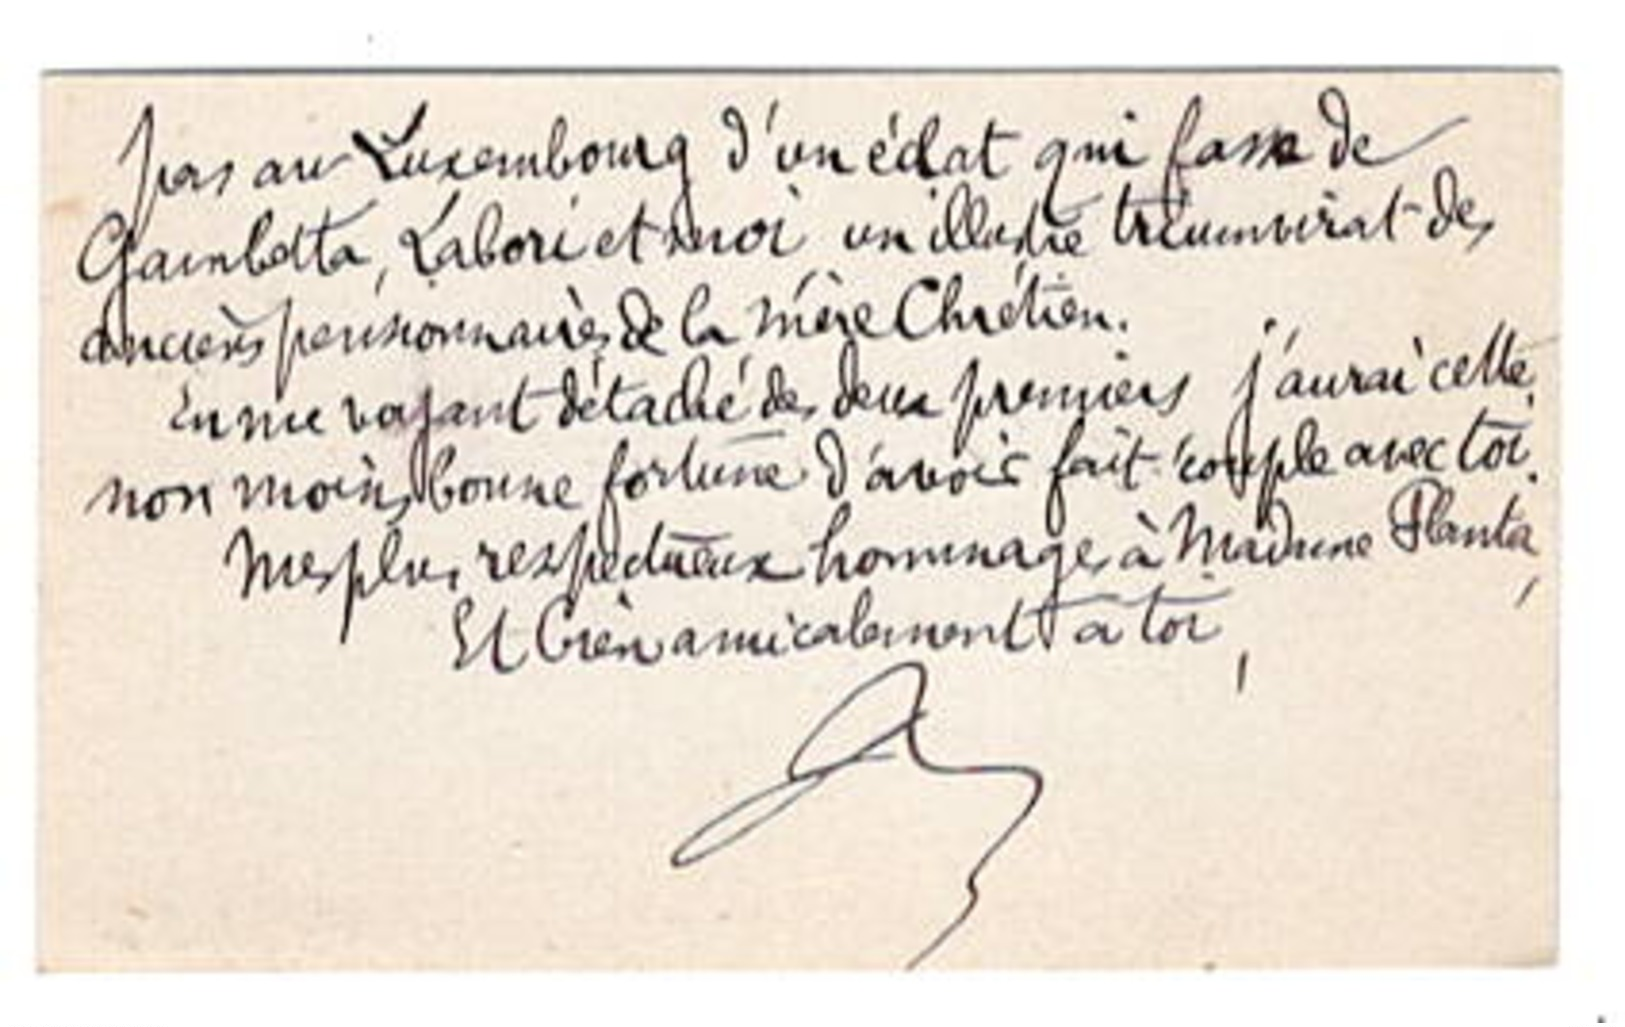 pas au Luxembourg d'un éclat qui fasse de
Gambetta, Labori et moi un illustre triumvirat des
anciens pensionnaires de la mère Chrétien.
En me voyant détaché des deux premiers j'aurai cette
non moins bonne fortune d'avoir fait couple avec toi.
Mes plus respectueux hommages à Madame Planta,
Et bien amicalement à toi,